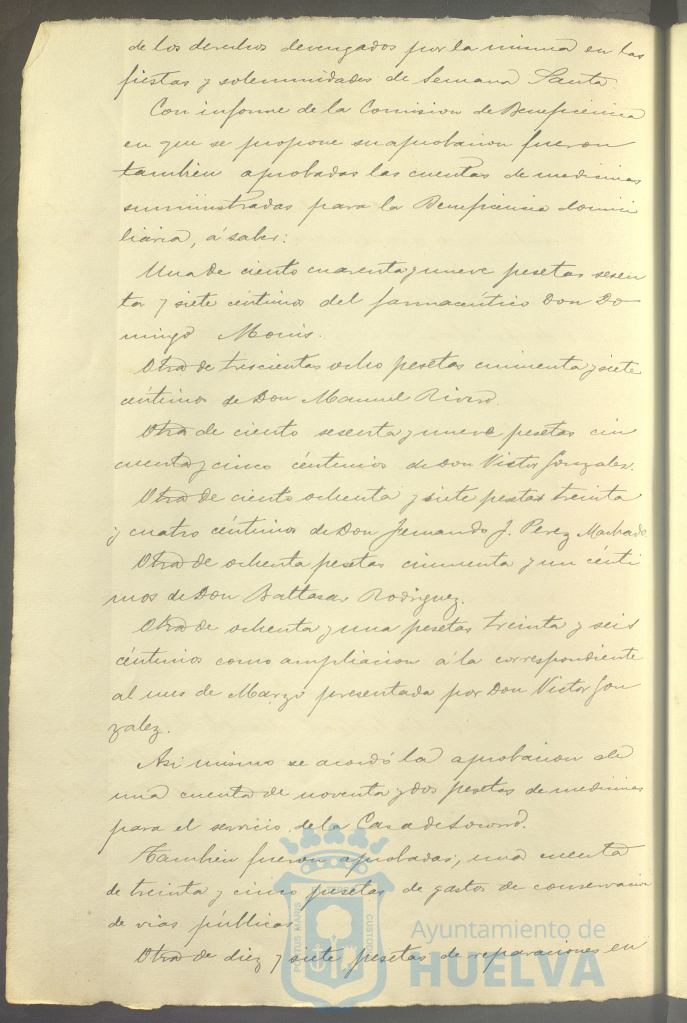 de los derechos devengados por la misma en las
fiestas y solemnidades de Semana Santa.
Con informe de la Comision de Beneficencia
en que se propone su aprobacion fueron
tambien aprobadas las cuentas de medicinas
suministradas para la Beneficencia domici
liaria, á saber:
Una de ciento cuarenta y nueve pesetas sesen
ta y siete céntimos del farmacéutico Don Do
mingo
Otra de trescientas ocho pesetas cincuenta y siete
céntimos de Don Manuel Rivero.
Otra de ciento sesenta y nueve pesetas cin
cuenta y cinco céntimos de Don Victor Gonzalez.
Otra de ciento ochenta y siete pesetas treinta
y cuatro céntimos de Don Fernando J. Perez Machado
Otra de ochenta pesetas cincuenta y un cénti
mos de Don Baltasar Rodriguez.
Otra de ochenta y una pesetas treinta y seis
céntimos como ampliacion á la correspondiente
al mes de Marzo presentada por Don Victor Gon
zalez.
Asi mismo se acordó la aprobacion de
una cuenta de noventa y dos pesetas de medicinas
para el servicio de la Casa de Socorro.
Tambien fueron aprobadas, una cuenta
de treinta y cinco pesetas de gastos de conservacion
de vias públicas
Otra de diez y siete pesetas de reparaciones en
PORTUS MARIS CUSTODIA
Ayuntamiento de
HUELVA